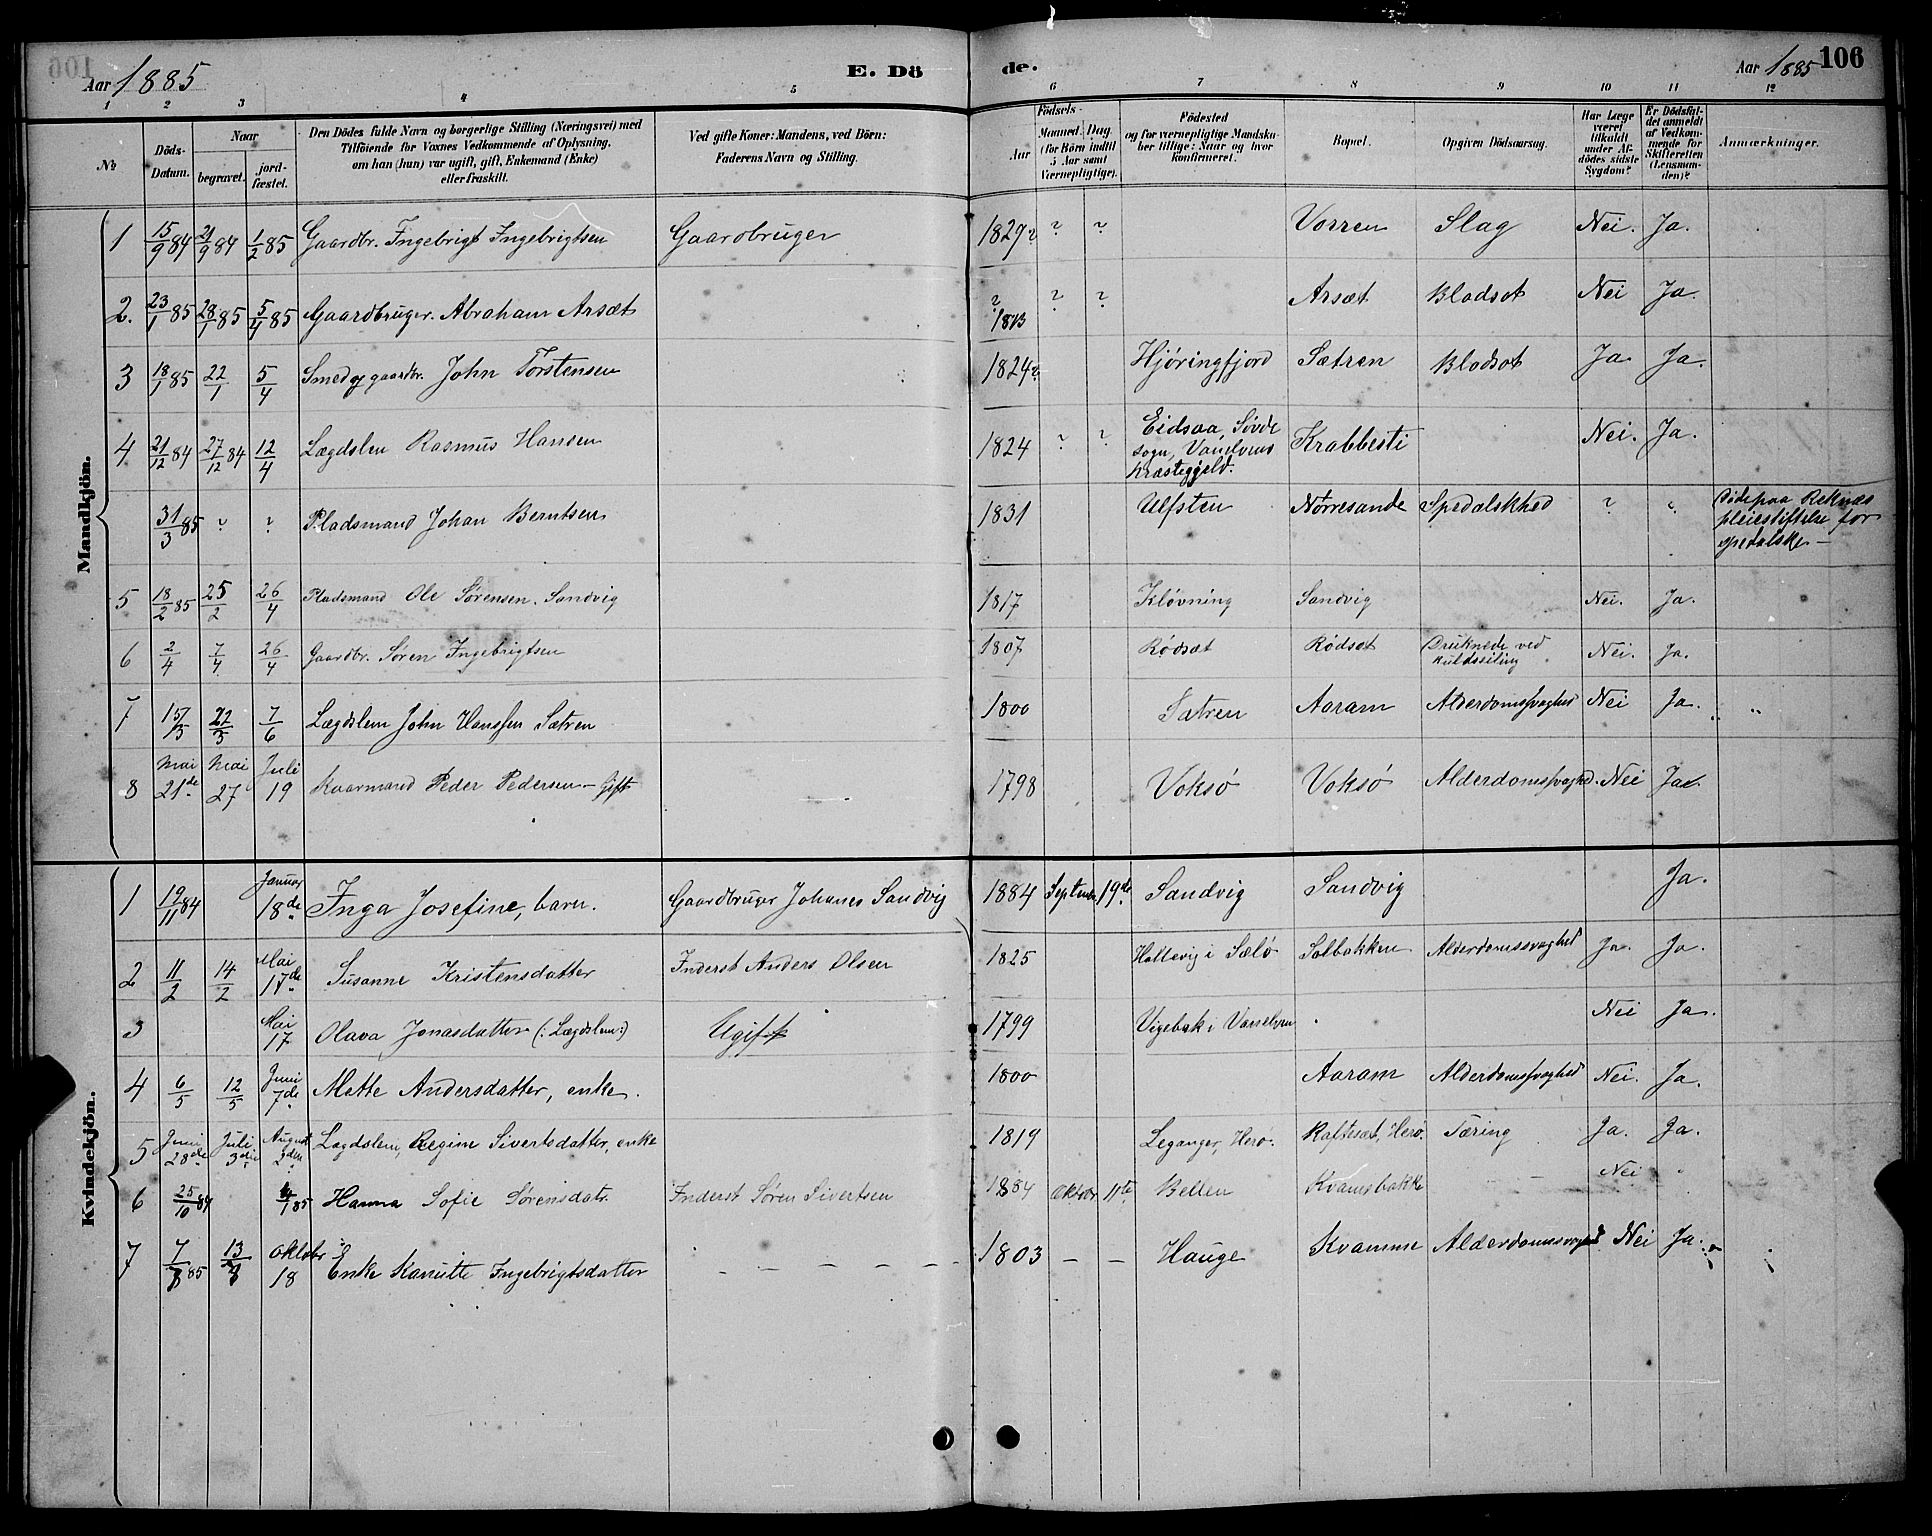 Aar 1885
E. Dö
de.
Aar 1885
106
1 2 3 4 5 6 7 8 9 10 11 12
№
Döds-Datum.
Naar
begravet.
jord-fæstet.
Den Dödes fulde Navn og borgerlige Stilling (Næringsvei) med
Tilföiende for Voxnes Vedkommende af Oplysning,
om han (hun) var ugift, gift, Enkemand (Enke)
eller fraskilt.
Ved gifte Koner: Mandens, ved Börn:
Faderens Navn og Stilling.
Födsels-
Aar
Maaned. Dag
(for Börn indtil
5 Aar samt
Værnepligtige).
Födested
og for værnepligtige Mandska-
ber tillige: Naar og hvor
konfirmeret.
Bopæl.
Opgiven Dödsaarsag.
Har Læge
været
tilkaldt
under Af-
dödes sidste
Sygdom?
Er Dödsfal-
det anmeldt
af Vedkom-
mende for
Skifteretten
(Lensman-
den)?
Anmærkninger.
Mandkjön.
1 15/9 84 21/9 84 1/2 85 Gaardbr. Ingebrigt Ingebrigtsen Gaardbruger 1829? ? ? Vorren Slag Nei. Ja.
2. 23/1 85 28/1 85 5/4 85 Gaardbruger. Abraham Arsæt ? 1813 ? ? Arsæt Blodsot Nei Ja.
3 18/1 85 22/1 5/4 Smed og gaardbr. John Torstensen 1824? Hjøringfjord Sætren Blodsot Ja. Ja.
4 21/12 84 27/12 84 12/4 Lægdslem Rasmus Hansen 1824 ? ? Eidsaa, Søvde
sogn, Vanelvens
Præstegjeld. Krabbesti Nei. Ja.
31/3 85 ? ? Pladsmand Johan Berntsen 1831 Ulfsten Nørresande Spedalskhed ? " Døde paa Reknæs
pleiestiftelse for
spedalske —
5 18/2 85 25/2 26/4 Pladsmand Ole Sørensen. Sandvig 1817 Kløvning Sandvig Nei. Ja.
6 2/4 7/4 26/4 Gaardbr. Søren Ingebrigtsen 1807 Rødsæt Rødsæt Druknede ved
kuldseiling Nei. Ja.
7 15/3 22/3 7/6 Lægdslem John Hanssen Sætren 1800 Sætren Aaram Alderdomssvaghed Nei Ja. " "
8 Mai 21de Mai 27 Juli 19 Kaarmand Peder Pedersen – Gift 1798 Voksø Voksø Alderdomssvaghed. Nei Ja.
Kvindekjön.
1 19/11 84 Januar 18de Inga Josefine, barn. Gaardbruger Johanes Sandvig 1884 Septmbr. 19de Sandvig Sandvig Ja.
2 11/2 14/2 Mai 17de Susanne Kristensdatter Inderst Anders Olsen 1825 Hallevig i Sælø Solbakken Alderdomssvaghed Ja. Ja.
3 Mai 17 Olava Jonasdatter (: Lægdslem:) Ugift 1799 Vigebak i Vanelven Nei Ja.
4 6/5 12/5 Juni 7de Mette Andersdatter, enke. 1800 Aaram Alderdomssvaghed Nei. Ja.
5 Juni 28de Juli 3die August 2den Lægdslem, Regine Sivertsdatter, enke 1819 Leganger, Herø. Raftesæt, Herø. Tæring Ja. Ja.
6 25/10 84 4/1 85 Hanna Sofie Sørensdatr. Inderst Søren Sivertsen 1884 Oktobr 11te Belten Kvamsbakke Nei "
7 7/8 85 13/8 Oktobr 18 Enke Kanutte Ingebrigtsdatter — — — — — 1803 — — Hauge Kvamme Alderdomssvaghed Nei Ja.